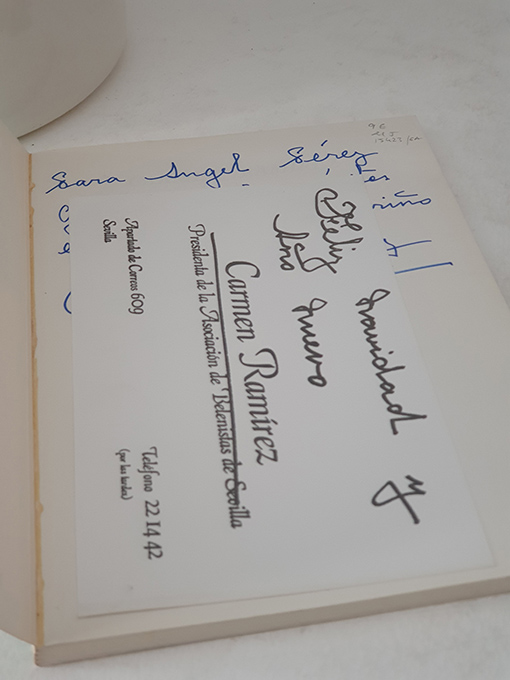 Para Angel Pérez
Feliz Navidad y
Año Nuevo
Carmen Ramírez
Presidenta de la Asociación de Belenistas de Sevilla
Apartado de Correos 609
Sevilla
Teléfono 22 14 42
(por las tardes)